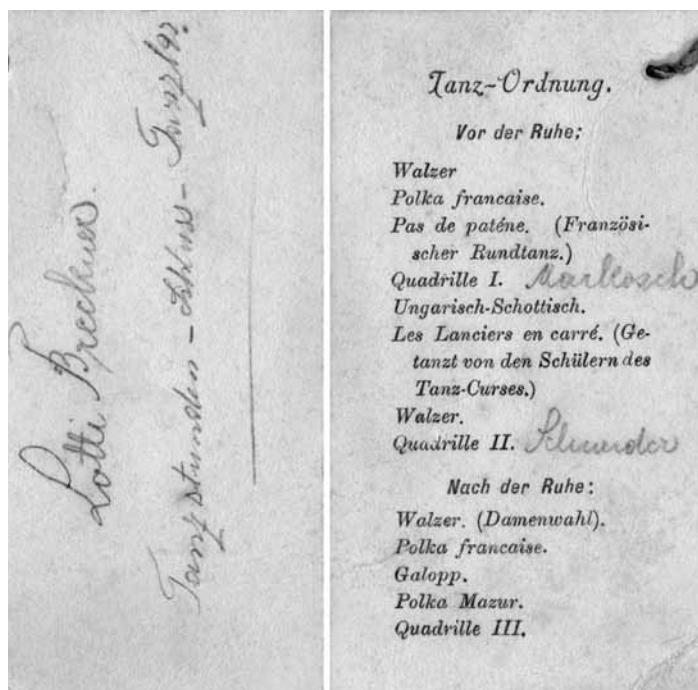 Lotti Breckner.
Tanzstunden-Schluss-
Tanz-Ordnung.
Vor der Ruhe:
Walzer
Polka francaise.
Pas de paténe. (Französi-
scher Rundtanz.)
Quadrille I. Markosch
Ungarisch-Schottisch.
Les Lanciers en carré. (Ge-
tanzt von den Schülern des
Tanz-Curses.)
Walzer.
Quadrille II. Schneider
Nach der Ruhe:
Walzer. (Damenwahl).
Polka francaise.
Galopp.
Polka Mazur.
Quadrille III.